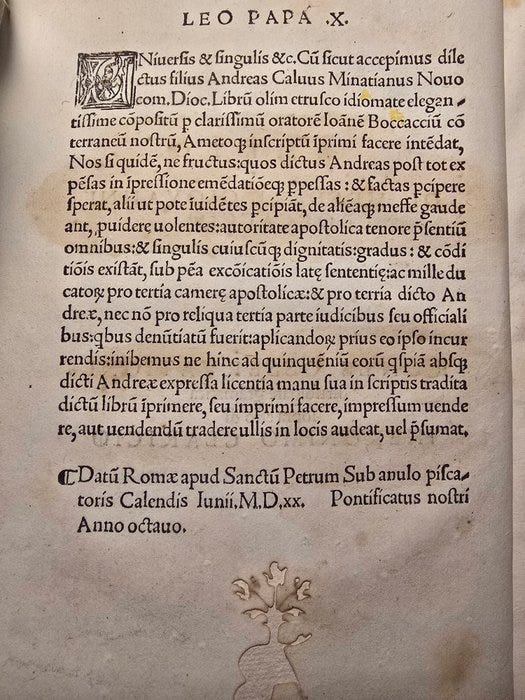 LEO PAPA .X.
VNiuersis & singulis &c. Cū sicut accepimus dile
ctus filius Andreas Caluus Minatianus Nouo
com. Dioc. Librū olim etrusco idiomate elegan-
tissime cōpositū p clarissimū oratorē Ioānē Boccacciū cō
terraneū nostrū, Ametoqꝫ inscriptū īprimi facere intēdat,
Nos si quidē, ne fructus: quos dictus Andreas post tot ex
pēsas in īpressione emēdatiōeqꝫ ppessas: & factas pcipere
sperat, alii ut pote iuidētes pcipiāt, de aliēaqꝫ messe gaude
ant, puidere uolentes: autoritate apostolica tenore p̄sentiū
omnibus: & singulis cuiuscūqꝫ dignitatis: gradus: & cōdi
tiōis existāt, sub pēa excōicatiōis latę sententię: ac mille du
catoꝝ pro tertia camerę apostolicæ: & pro terria dicto An
dreæ, nec nō pro reliqua tertia parte iudicibus seu officiali
bus: qbus denūtiatū fuerit: aplicandoꝝ prius eo ipso incur
rendis: inibemus ne hinc ad quinquēniū eorū qspiā absqꝫ
dicti Andreæ expressa licentia manu sua in scriptis tradita
dictū librū īprimere, seu imprimi facere, impressum uende
re, aut uendendū tradere ullis in locis audeat, uel p̄sumat.
⸿ Datū Romæ apud Sanctū Petrum Sub anulo pisca-
toris Calendis Iunii. M.D.xx. Pontificatus nostri
Anno octauo.